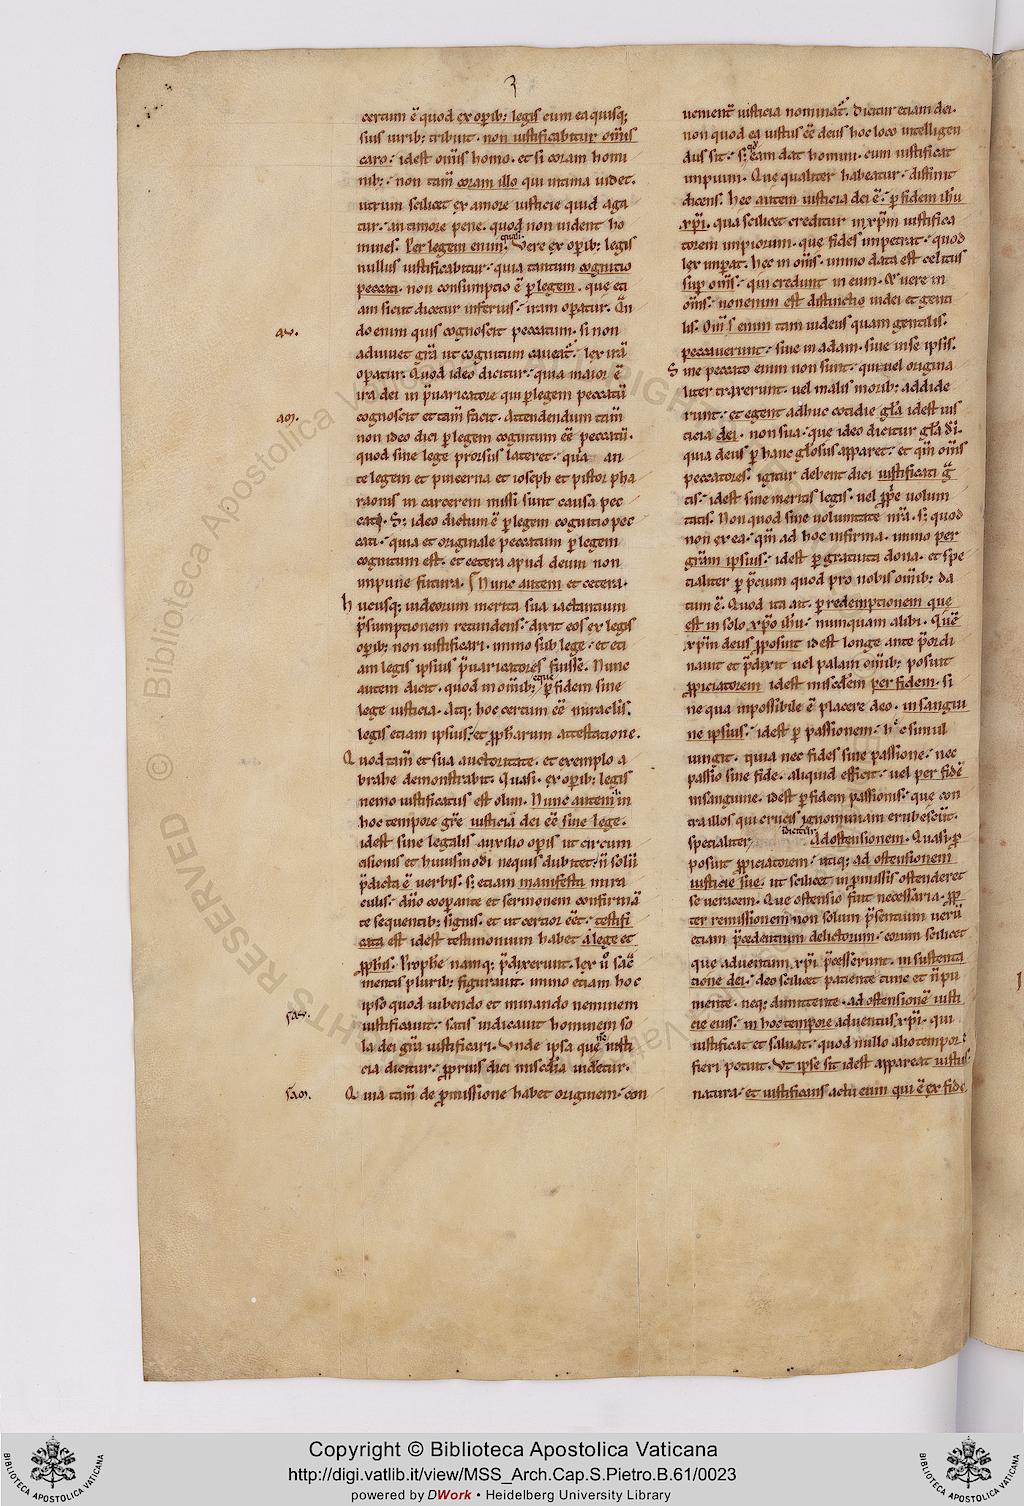 3
certum ē quod ex oꝑib; legis eum ea quisq;
suis urib; tribuit. non iustificabitur omīs
caro. idest omīs homo. et si coram homi
nib; non tam̄ coram illo qui intima uidet.
utrum scilicet ex amore iusticie quid aga
tur. an timore pene. quod non uident ho
mines. Per legem enim. Vere ex oꝑib; legis
nullus iustificabitur. quia tantum cognitio
peccati. non consumptio ē ꝑ legem. que eti
am sicut dicetur inferius. iram oꝑatur. Qn̄
do enim quis cognoscit peccatum. si non
adiuuet gr̄a ut cognitum caueat. lex irā
oꝑatur. Quod ideo dicitur. quia maior ē
ira dei in p̄uaricatore qui ꝑ legem peccatū
cognoscit et tam̄ facit. Attendendum tam̄
non ideo dici ꝑ legem cognitum eē peccatū.
quod sine lege prorsus lateret. quia an
te legem et pincerna et ioseph et pistor pha
raonis in carcerem missi sunt causa pec
cati. S; ideo dictum ē ꝑ legem cognitio pec
cati. quia et originale peccatum ꝑ legem
cognitum est. et cetera apud deum non
impune futura. Nunc autem et cetera.
hucusq; iudeorum merita sua iactantium
p̄sumptionem retundens. dixit eos ex legis
oꝑib; non iustificari. immo sub lege. et eti
am legis ipsius p̄uaricatores fuisse. Nunc
autem dicit. quod in omīb; eque ꝑ fidem sine
lege iusticia. Atq; hoc certum eē miraclīs.
legis etiam ipsius. et ꝓpharum attestatione.
Quod tam̄ et sua auctoritate. et exemplo a
brahe demonstrabit. Quasi. ex oꝑib; legis
nemo iustificatus est olim. Nunc autem in
hoc tempore gr̄e iusticia dei eē sine lege.
idest sine legalis auxilio opis ut circum
cisionis et huiusmodi nequis dubitet. n̄ solū
p̄dicta ē uerbis. s; etiam manifesta mira
culis. dn̄o cooꝑante et sermonem confirmā
te sequentib; signis. et ut certior eēt. testifi
cata est idest testimonium habet a lege et
ꝓphis. Prophe namq; p̄dixerunt. lex ů sac̄
mentis plurib; figurauit. immo etiam hoc
ipso quod iubendo et minando neminem
iustificauit. satis indicauit hominem so
la dei gr̄a iustificari. Vnde ipsa que iusti
cia dicitur. ꝓprius dici miscd̄ia uidetur.
Quia tam̄ de ꝑmissione habet originem. con
aū.
am̄.
saū.
sam̄.
uenient̄ iusticia nominat᷑. Dicitur etiam dei.
non quod ea iustus eē deus hoc loco intelligen
dus sit. s; qd̄ eam dat homini. cum iustificat
impium. Que qualiter habeatur. diffinit
dicens. hec autem iusticia dei ē. ꝑ fidem ih̄u
xp̄i. qua scilicet creditur in xp̄m iustifica
torem impiorum. que fides impetrat. quod
lex imꝑat. hec in omīs. immo data est celitus
suꝑ omīs. qui credunt in eum. & uere in
omīs. non enim est distinctio iudei et genti
lis. Omīs enim tam iudeus quam gentilis.
peccauerunt. siue in adam. siue in se ipsis.
Sine peccato enim non sunt. qui uel origina
liter traxerunt. uel malis morib; addide
runt. et egent adhuc cotidie gl̄a idest ius
ticia dei. non sua. que ideo dicitur gl̄a dī.
quia deus ꝑ hanc gl̄osus apparet. et qm̄ omīs
peccatores. igitur debent dici iustificati gr̄
tis. idest sine meritis legis. uel ꝓp̄e uolun
tatis. Non quod sine uoluntate nr̄a. s; quod
non ex ea. qm̄ ad hoc infirma. immo per
gr̄am ipsius. idest ꝑ gratuita dona. et spe
cialiter ꝑ p̄cium quod pro nobis omīb; da
tum ē. Quod ita ait. ꝑ redemptionem que
est in solo xp̄o ih̄u. numquam alibi. Quē
xp̄m deus ꝓposuit idest longe ante p̄ordi
nauit et p̄dixit uel palam omīb; posuit
ꝓpiciatorem idest miscd̄em per fidem. si
ne qua impossibile ē placere deo. in sangui
ne ipsius. idest ꝑ passionem. h̄ simul
iungit. quia nec fides sine passione. nec
passio sine fide. aliquid efficit. uel per fidē
in sanguine. idest ꝑ fidem passionis. que con
tra illos qui crucis ignominiam erubescūt.
specialiter dicitur Ad ostensionem. Quasi. ꝓ
posuit ꝓpiciatorem. utiq; ad ostensionem
iusticie sue. ut scilicet in ꝓmissis ostenderet
se ueracem. Que ostensio fuit necessaria. ꝓp
ter remissionem non solum p̄sentium uerū
etiam p̄cedentium delictorum. eorum scilicet
que aduentum xp̄i p̄cesserunt. in sustenta
tione dei. deo scilicet patiente tunc et n̄ pu
niente. neq; dimittente. ad ostensionē iusti
cie eius. in hoc tempore aduentus xp̄i. qui
iustificat et saluat. quod nullo alio tempore
fieri potuit. Vt ipse sit idest appareat iustus
natura. et iustificans actu eum qui ē ex fide
© Biblioteca Apostolica Vaticana
RIGHTS RESERVED
BIBLIOTECA APOSTOLICA VATICANA
Copyright © Biblioteca Apostolica Vaticana
http://digi.vatlib.it/view/MSS_Arch.Cap.S.Pietro.B.61/0023
powered by DWork • Heidelberg University Library
BIBLIOTECA APOSTOLICA VATICANA